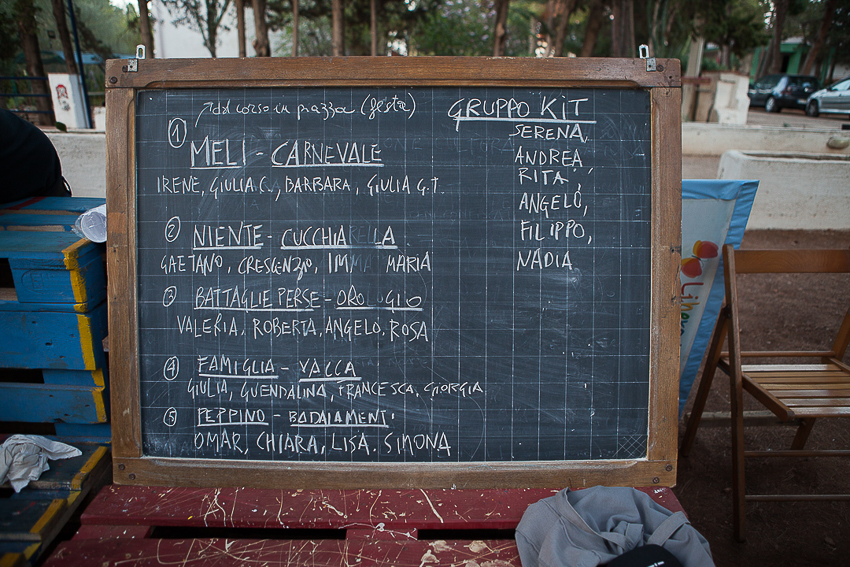 ↗ dal corso in piazza (festa)
① MELI - CARNEVALE
IRENE, GIULIA C., BARBARA, GIULIA G.T.
② NIENTE - CUCCHIARELLA
GAETANO, CRESCENZIO, IMMA MARIA
③ BATTAGLIE PERSE - OROLOGIO
VALERIA, ROBERTA, ANGELO, ROSA
④ FAMIGLIA - VACCA
GIULIA, GUENDALINA, FRANCESCA, GIORGIA
⑤ PEPPINO - BADALAMENTI
OMAR, CHIARA, LISA. SIMONA
GRUPPO KIT
SERENA,
ANDREA,
RITA,
ANGELO,
FILIPPO,
NADIA